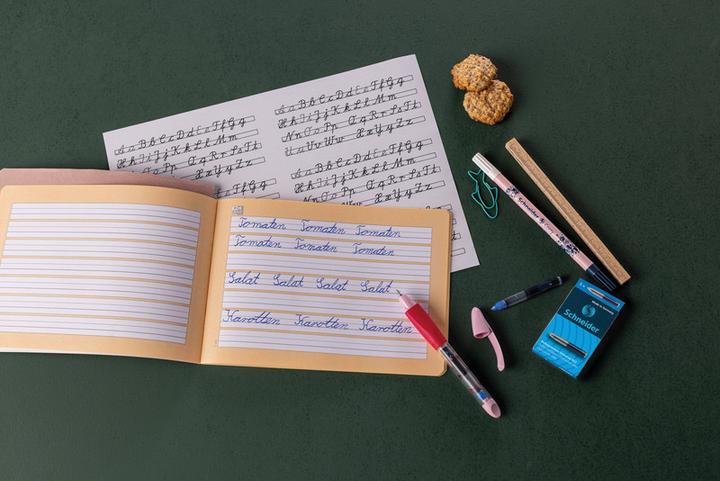 Aa Bb Cc Dd Ee Ff Gg
Hh Ii Jj Kk Ll Mm
Qq Rr Ss Tt
Xx Yy Zz
Ff Gg
Aa Bb Cc Dd Ee Ff Gg
Hh Ii Jj Kk Ll Mm
Nn Oo Pp Qq Rr Ss Tt
Uu Vv Ww Xx Yy Zz
Aa Bb Cc Dd Ee Ff Gg
Hh Ii Jj Kk Ll Mm
Nn Oo Pp Qq Rr Ss Tt
Xx Yy Zz
Tomaten Tomaten Tomaten
Tomaten Tomaten Tomaten
Salat Salat Salat Salat
Karotten Karotten Karotten
Schneider
Schneider